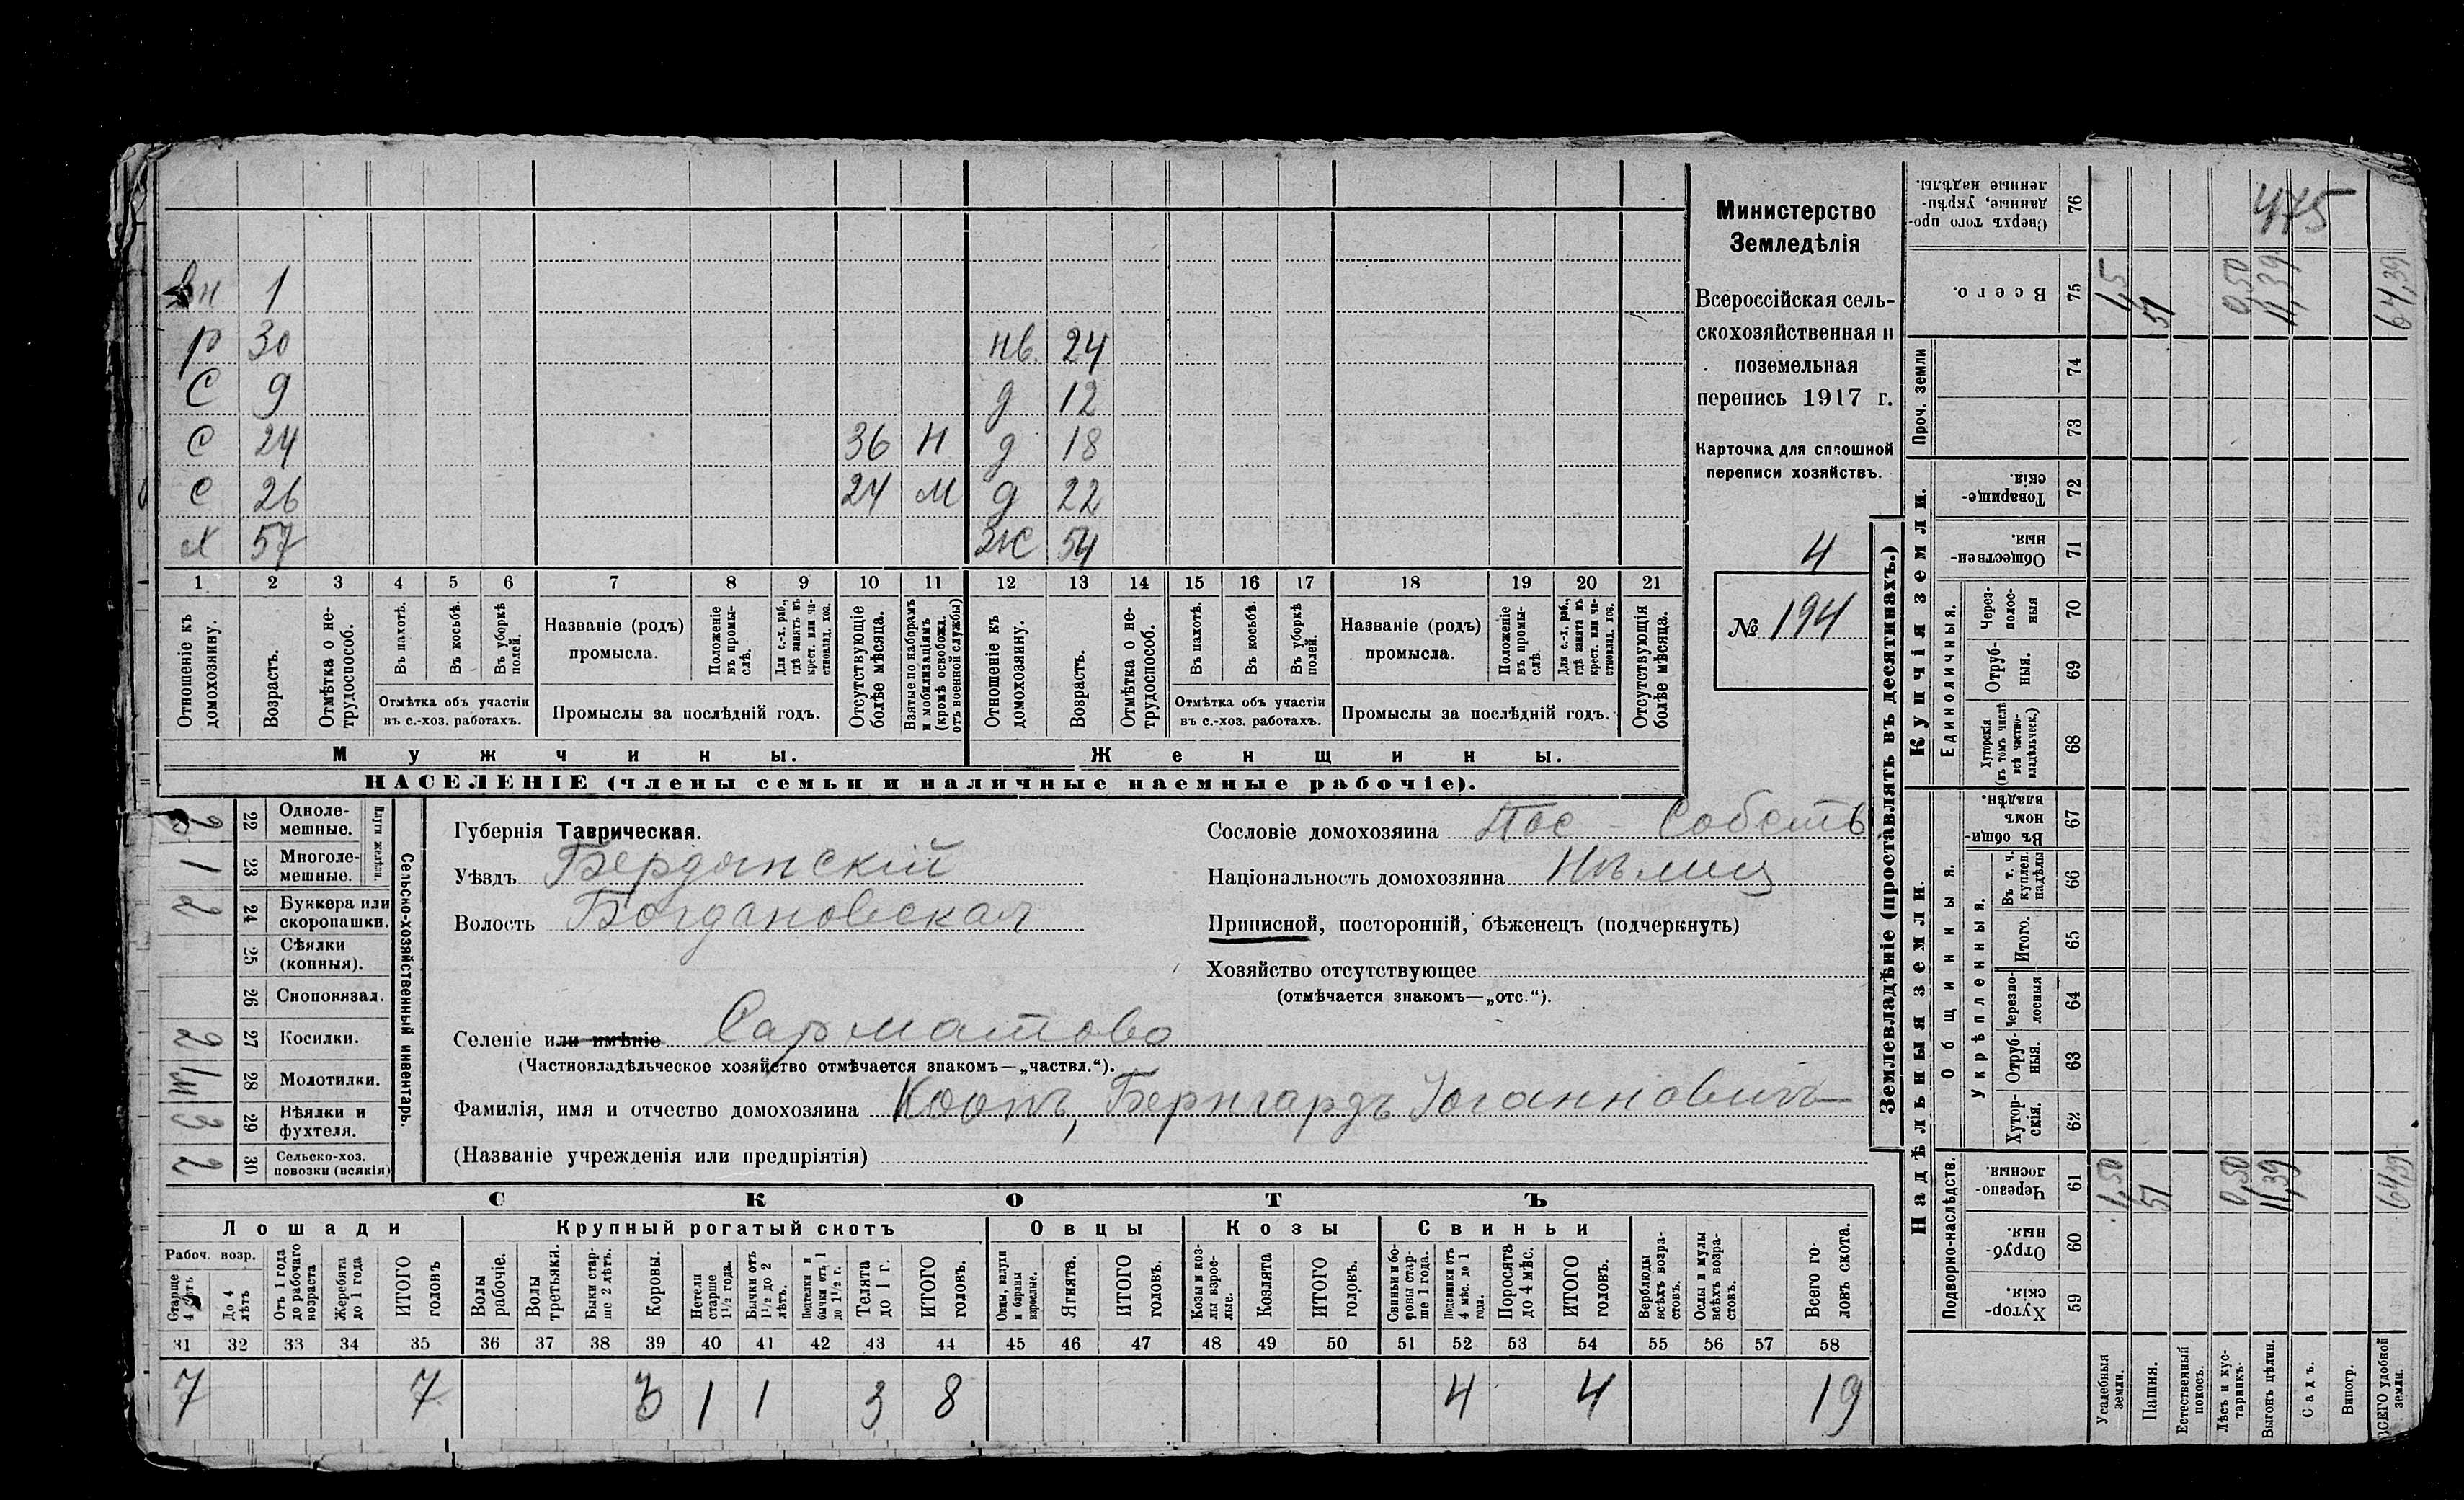 вн 1
р 30 нв. 24
С 9 д 12
С 24 36 Н д 18
С 26 24 М д 22
Х 57 Ж 54
1 2 3 4 5 6 7 8 9 10 11 12 13 14 15 16 17 18 19 20 21
Отношеніе къ домохозяину.
Возрастъ.
Отмѣтка о не-трудоспособ.
Въ пахотѣ.
Въ косьбѣ.
Въ уборкѣ полей.
Отмѣтка объ участіи
въ с.-хоз. работахъ.
Названіе (родъ)
промысла.
Положеніе въ промы-слѣ.
Для с.-х. раб., гдѣ занятъ въ крест. или ча-стновлад. хоз.
Промыслы за послѣдній годъ.
Отсутствующіе болѣе мѣсяца.
Взятые по наборамъ и мобилизаціямъ (кромѣ освобожд. отъ военной службы)
Отношеніе къ домохозяину.
Возрастъ.
Отмѣтка о не-трудоспособ.
Въ пахотѣ.
Въ косьбѣ.
Въ уборкѣ полей.
Отмѣтка объ участіи
въ с.-хоз. работахъ.
Названіе (родъ)
промысла.
Положеніе въ промы-слѣ.
Для с.-х. раб., гдѣ занята въ крест. или ча-стновлад. хоз.
Промыслы за послѣдній годъ.
Отсутствующія болѣе мѣсяца.
Мужчины. Женщины.
НАСЕЛЕНІЕ (члены семьи и наличные наемные рабочіе).
Министерство
Земледѣлія
Всероссійская сель-
скохозяйственная и
поземельная
перепись 1917 г.
Карточка для сплошной
переписи хозяйствъ.
4
№ 194
Сельско-хозяйственный инвентарь.
Плуги желѣзн.
22 Одноле-мешные.
1 23 Многоле-мешные.
2 24 Буккера или скоропашки.
25 Сѣялки (конныя).
26 Сноповязал.
2 27 Косилки.
28 Молотилки.
3 29 Вѣялки и фухтеля.
2 30 Сельско-хоз. повозки (всякія)
Губернія Таврическая.
Уѣздъ Бердянскій
Волость Богдановская
Сословіе домохозяина Пос - Собств
Національность домохозяина Нѣмец
Приписной, посторонній, бѣженецъ (подчеркнуть)
Хозяйство отсутствующее
(отмѣчается знакомъ—„отс.“).
Селеніе или имѣніе Сарматово
(Частновладѣльческое хозяйство отмѣчается знакомъ—„частвл.“).
Фамилія, имя и отчество домохозяина Коопъ, Бернгардъ Іоганновичъ
(Названіе учрежденія или предпріятія)
СКОТЪ
Лошади Крупный рогатый скотъ Овцы Козы Свиньи
Рабоч. возр.
Старше 4 лѣтъ
До 4 лѣтъ
Отъ 1 года до рабочаго возраста
Жеребята до 1 года
ИТОГО головъ
Волы рабочіе.
Волы третьяки.
Быки стар-ше 2 лѣтъ.
Коровы.
Нетели старше 1½ года.
Бычки отъ 1½ до 2 лѣтъ.
Подтелки и бычки отъ 1 до 1½ г.
Телята до 1 г.
ИТОГО головъ.
Овцы, валухи и бараны взрослые.
Ягнята.
ИТОГО головъ.
Козы и коз-лы взрос-лые.
Козлята
ИТОГО головъ.
Свиньи и бо-ровы стар-ше 1 года.
Подсвинки отъ 4 мѣс. до 1 года.
Поросята до 4 мѣс.
ИТОГО головъ.
Верблюды всѣхъ возра-стовъ.
Ослы и мулы всѣхъ возра-стовъ.
Всего го-ловъ скота.
31 32 33 34 35 36 37 38 39 40 41 42 43 44 45 46 47 48 49 50 51 52 53 54 55 56 57 58
7 7 3 1 1 3 8 4 4 19
Землевладѣніе (проставлять въ десятинахъ.)
Сверхъ того про-данные, укрѣп-ленные надѣлы. 76 475
Всего. 75 1,5 51 0,50 11,39 64,39
Проч. земли
74
73
Купчія земли.
Товарище-скія. 72
Обществен-ныя. 71
Единоличныя.
Через-полос-ныя 70
Отруб-ныя. 69
Хуторскія (въ томъ числѣ всѣ частно-владѣльческ.) 68
Надѣльныя земли.
Общинныя.
Въ общин-номъ владѣн. 67
Укрѣпленныя.
Въ т. ч. куплен. надѣлы 66
Итого. 65
Черезпо-лосныя 64
Отруб-ныя. 63
Хутор-скія. 62
Подворно-наслѣдств.
Черезпо-лосныя. 61 1,50 51 0,50 11,39 64,39
Отруб-ныя. 60
Хутор-скія. 59
Усадебныя земли.
Пашня.
Естественный покосъ.
Лѣсъ и кус-тарникъ.
Выгонъ цѣлин.
Садъ.
Виногр.
ВСЕГО удобной земли.